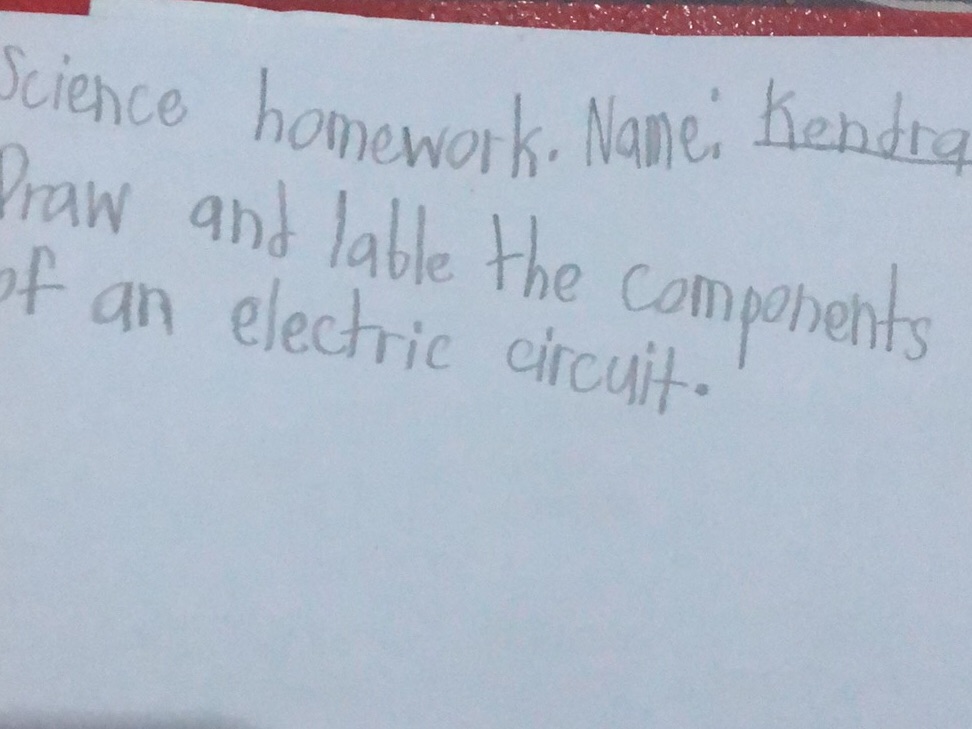 Science homework. Name: Kendra
Draw and lable the components
of an electric circuit.